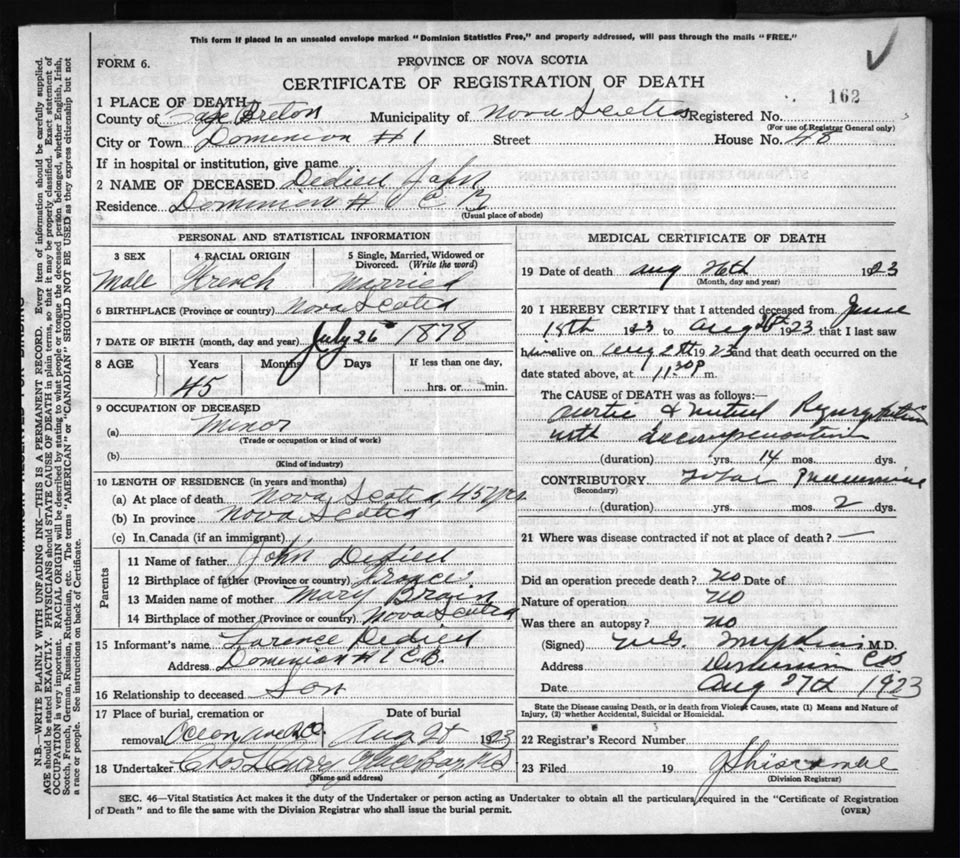 This form if placed in an unsealed envelope marked "Dominion Statistics Free," and properly addressed, will pass through the mails "FREE."
FORM 6.
PROVINCE OF NOVA SCOTIA
CERTIFICATE OF REGISTRATION OF DEATH
162
1 PLACE OF DEATH
County of Cape Breton Municipality of Nova Scotia Registered No.
(For use of Registrar General only)
City or Town Dominion #1 Street House No. 48
If in hospital or institution, give name
2 NAME OF DECEASED Dedieu John
Residence Dominion #1 C B
(Usual place of abode)
PERSONAL AND STATISTICAL INFORMATION
3 SEX 4 RACIAL ORIGIN 5 Single, Married, Widowed or Divorced. (Write the word)
Male French Married
6 BIRTHPLACE (Province or country) Nova Scotia
7 DATE OF BIRTH (month, day and year) July 26 1878
8 AGE Years Months Days If less than one day,
45 hrs. or min.
9 OCCUPATION OF DECEASED
(a) Minor
(Trade or occupation or kind of work)
(b)
(Kind of industry)
10 LENGTH OF RESIDENCE (in years and months)
(a) At place of death Nova Scotia, 45 yrs
(b) In province Nova Scotia
(c) In Canada (if an immigrant)
Parents
11 Name of father John Dedieu
12 Birthplace of father (Province or country) France
13 Maiden name of mother Mary
14 Birthplace of mother (Province or country) Nova Scotia
15 Informant's name Lorence Dedieu
Address Dominion #1 C.B.
16 Relationship to deceased Son
17 Place of burial, cremation or Date of burial
removal Aug 1923
18 Undertaker Curry Glace Bay NS
(Name and address)
MEDICAL CERTIFICATE OF DEATH
19 Date of death Aug 26th 1923
(Month, day and year)
20 I HEREBY CERTIFY that I attended deceased from June
18th 1923 to Aug 1923 that I last saw
him alive on Aug 1923 and that death occurred on the
date stated above, at 11.30 P m.
The CAUSE of DEATH was as follows:—
Aortic & Mitral Regurgitation
with decompensation
(duration) yrs. 14 mos. dys.
CONTRIBUTORY Lobar Pneumonia
(Secondary)
(duration) yrs. mos. 2 dys.
21 Where was disease contracted if not at place of death? —
Did an operation precede death? no Date of
Nature of operation no
Was there an autopsy? no
(Signed) M.D.
Address Dominion CB
Date Aug 27th 1923
State the Disease causing Death, or in death from Violent Causes, state (1) Means and Nature of
Injury, (2) whether Accidental, Suicidal or Homicidal.
22 Registrar's Record Number
23 Filed 19
(Division Registrar)
SEC. 46—Vital Statistics Act makes it the duty of the Undertaker or person acting as Undertaker to obtain all the particulars required in the "Certificate of Registration
of Death" and to file the same with the Division Registrar who shall issue the burial permit. (OVER)
N.B.—WRITE PLAINLY WITH UNFADING INK—THIS IS A PERMANENT RECORD. Every item of information should be carefully supplied.
AGE should be stated EXACTLY. PHYSICIANS should STATE CAUSE OF DEATH in plain terms, so that it may be properly classified. Exact statement of
OCCUPATION is very important. RACIAL ORIGIN will be described by stating to what people or tongue the deceased person belonged, whether English, Irish,
Scotch, French, German, Russian, Ruthenian, etc. The terms "AMERICAN" or "CANADIAN" SHOULD NOT BE USED as they express citizenship but not
a race or people. See instructions on back of Certificate.